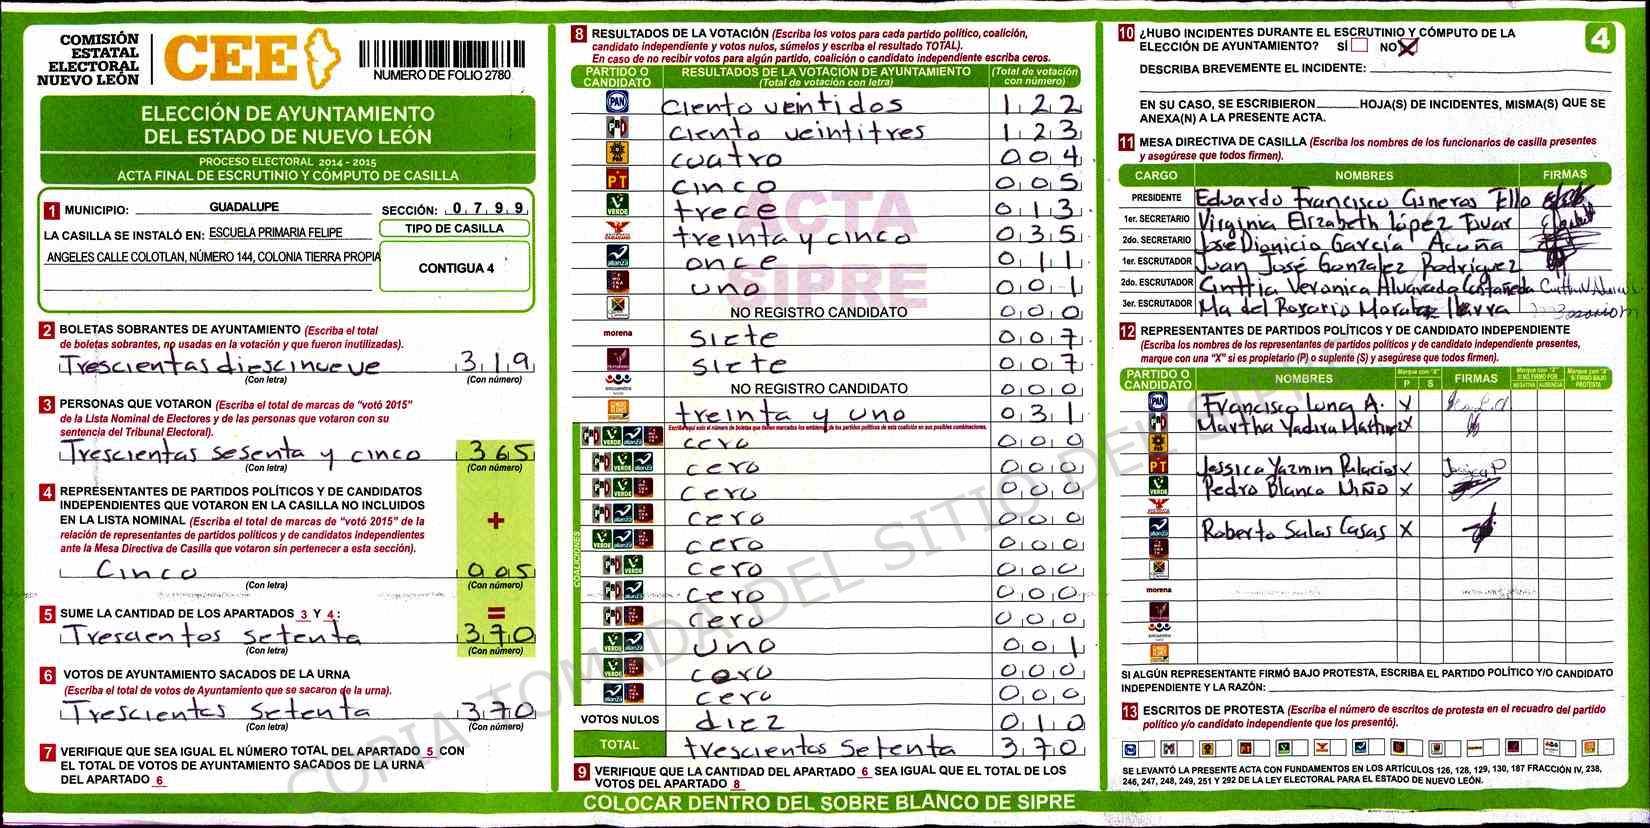 COMISIÓN
ESTATAL
ELECTORAL
NUEVO LEÓN
CEE
NUMERO DE FOLIO 2780
ELECCIÓN DE AYUNTAMIENTO
DEL ESTADO DE NUEVO LEÓN
PROCESO ELECTORAL 2014 - 2015
ACTA FINAL DE ESCRUTINIO Y CÓMPUTO DE CASILLA
1 MUNICIPIO: GUADALUPE SECCIÓN: 0 7 9 9
LA CASILLA SE INSTALÓ EN: ESCUELA PRIMARIA FELIPE
ANGELES CALLE COLOTLAN, NÚMERO 144, COLONIA TIERRA PROPIA
TIPO DE CASILLA
CONTIGUA 4
2 BOLETAS SOBRANTES DE AYUNTAMIENTO (Escriba el total
de boletas sobrantes, no usadas en la votación y que fueron inutilizadas).
Trescientas diescinueve 3 1 9
(Con letra) (Con número)
3 PERSONAS QUE VOTARON (Escriba el total de marcas de "votó 2015"
de la Lista Nominal de Electores y de las personas que votaron con su
sentencia del Tribunal Electoral).
Trescientas sesenta y cinco 3 6 5
(Con letra) (Con número)
4 REPRESENTANTES DE PARTIDOS POLÍTICOS Y DE CANDIDATOS
INDEPENDIENTES QUE VOTARON EN LA CASILLA NO INCLUIDOS
EN LA LISTA NOMINAL (Escriba el total de marcas de "votó 2015" de la
relación de representantes de partidos políticos y de candidatos independientes
ante la Mesa Directiva de Casilla que votaron sin pertenecer a esta sección).
+
Cinco 0 0 5
(Con letra) (Con número)
5 SUME LA CANTIDAD DE LOS APARTADOS 3 Y 4 :
=
Trescientos setenta 3 7 0
(Con letra) (Con número)
6 VOTOS DE AYUNTAMIENTO SACADOS DE LA URNA
(Escriba el total de votos de Ayuntamiento que se sacaron de la urna).
Trescientos setenta 3 7 0
(Con letra) (Con número)
7 VERIFIQUE QUE SEA IGUAL EL NÚMERO TOTAL DEL APARTADO 5 CON
EL TOTAL DE VOTOS DE AYUNTAMIENTO SACADOS DE LA URNA
DEL APARTADO 6
8 RESULTADOS DE LA VOTACIÓN (Escriba los votos para cada partido político, coalición,
candidato independiente y votos nulos, súmelos y escriba el resultado TOTAL).
En caso de no recibir votos para algún partido, coalición o candidato independiente escriba ceros.
PARTIDO O CANDIDATO RESULTADOS DE LA VOTACIÓN DE AYUNTAMIENTO (Total de votación con letra) (Total de votación con número)
PAN ciento veintidos 1 2 2
PRD ciento veintitres 1 2 3
cuatro 0 0 4
PT cinco 0 0 5
VERDE trece 0 1 3
treinta y cinco 0 3 5
alianza once 0 1 1
uno 0 0 1
NO REGISTRO CANDIDATO 0 0 0
morena siete 0 0 7
siete 0 0 7
encuentro NO REGISTRO CANDIDATO 0 0 0
treinta y uno 0 3 1
COALICIONES
Escriba aquí solo el número de boletas que fueron marcados los emblemas de los partidos políticos de esta coalición en sus posibles combinaciones.
cero 0 0 0
cero 0 0 0
cero 0 0 0
cero 0 0 0
cero 0 0 0
cero 0 0 0
cero 0 0 0
cero 0 0 0
uno 0 0 1
cero 0 0 0
cero 0 0 0
VOTOS NULOS diez 0 1 0
TOTAL trescientos setenta 3 7 0
9 VERIFIQUE QUE LA CANTIDAD DEL APARTADO 6 SEA IGUAL QUE EL TOTAL DE LOS
VOTOS DEL APARTADO 8
ACTA
SIPRE
COPIA TOMADA DEL SITIO DEL SIPRE
COLOCAR DENTRO DEL SOBRE BLANCO DE SIPRE
4
10 ¿HUBO INCIDENTES DURANTE EL ESCRUTINIO Y CÓMPUTO DE LA
ELECCIÓN DE AYUNTAMIENTO? SÍ NO X
DESCRIBA BREVEMENTE EL INCIDENTE:
EN SU CASO, SE ESCRIBIERON HOJA(S) DE INCIDENTES, MISMA(S) QUE SE
ANEXA(N) A LA PRESENTE ACTA.
11 MESA DIRECTIVA DE CASILLA (Escriba los nombres de los funcionarios de casilla presentes
y asegúrese que todos firmen).
CARGO NOMBRES FIRMAS
PRESIDENTE Eduardo Francisco Cisneros Ello
1er. SECRETARIO Virginia Elizabeth López Tovar
2do. SECRETARIO Jose Dionicio García Acuña
1er. ESCRUTADOR Juan José Gonzalez Rodríguez
2do. ESCRUTADOR Cinthia Veronica Alvarado Castañeda
3er. ESCRUTADOR Ma del Rosario Ibarra
12 REPRESENTANTES DE PARTIDOS POLÍTICOS Y DE CANDIDATO INDEPENDIENTE
(Escriba los nombres de los representantes de partidos políticos y de candidato independiente presentes,
marque con una "X" si es propietario (P) o suplente (S) y asegúrese que todos firmen).
PARTIDO O CANDIDATO NOMBRES Marque con "X" P S FIRMAS Marque con "X" SI NO FIRMO POR NEGATIVA AUSENCIA Marque con "X" SI FIRMO BAJO PROTESTA
PAN Francisco Luna A. X
Martha Yadira Martinez X
PT Jessica Yazmin Palacios X Jessica P
VERDE Pedro Blanco Niño X
alianza Roberto Salas Casas X
morena
encuentro
SI ALGÚN REPRESENTANTE FIRMÓ BAJO PROTESTA, ESCRIBA EL PARTIDO POLÍTICO Y/O CANDIDATO
INDEPENDIENTE Y LA RAZÓN:
13 ESCRITOS DE PROTESTA (Escriba el número de escritos de protesta en el recuadro del partido
político y/o candidato independiente que los presentó).
SE LEVANTÓ LA PRESENTE ACTA CON FUNDAMENTOS EN LOS ARTÍCULOS 126, 128, 129, 130, 187 FRACCIÓN IV, 238,
246, 247, 248, 249, 251 Y 292 DE LA LEY ELECTORAL PARA EL ESTADO DE NUEVO LEÓN.